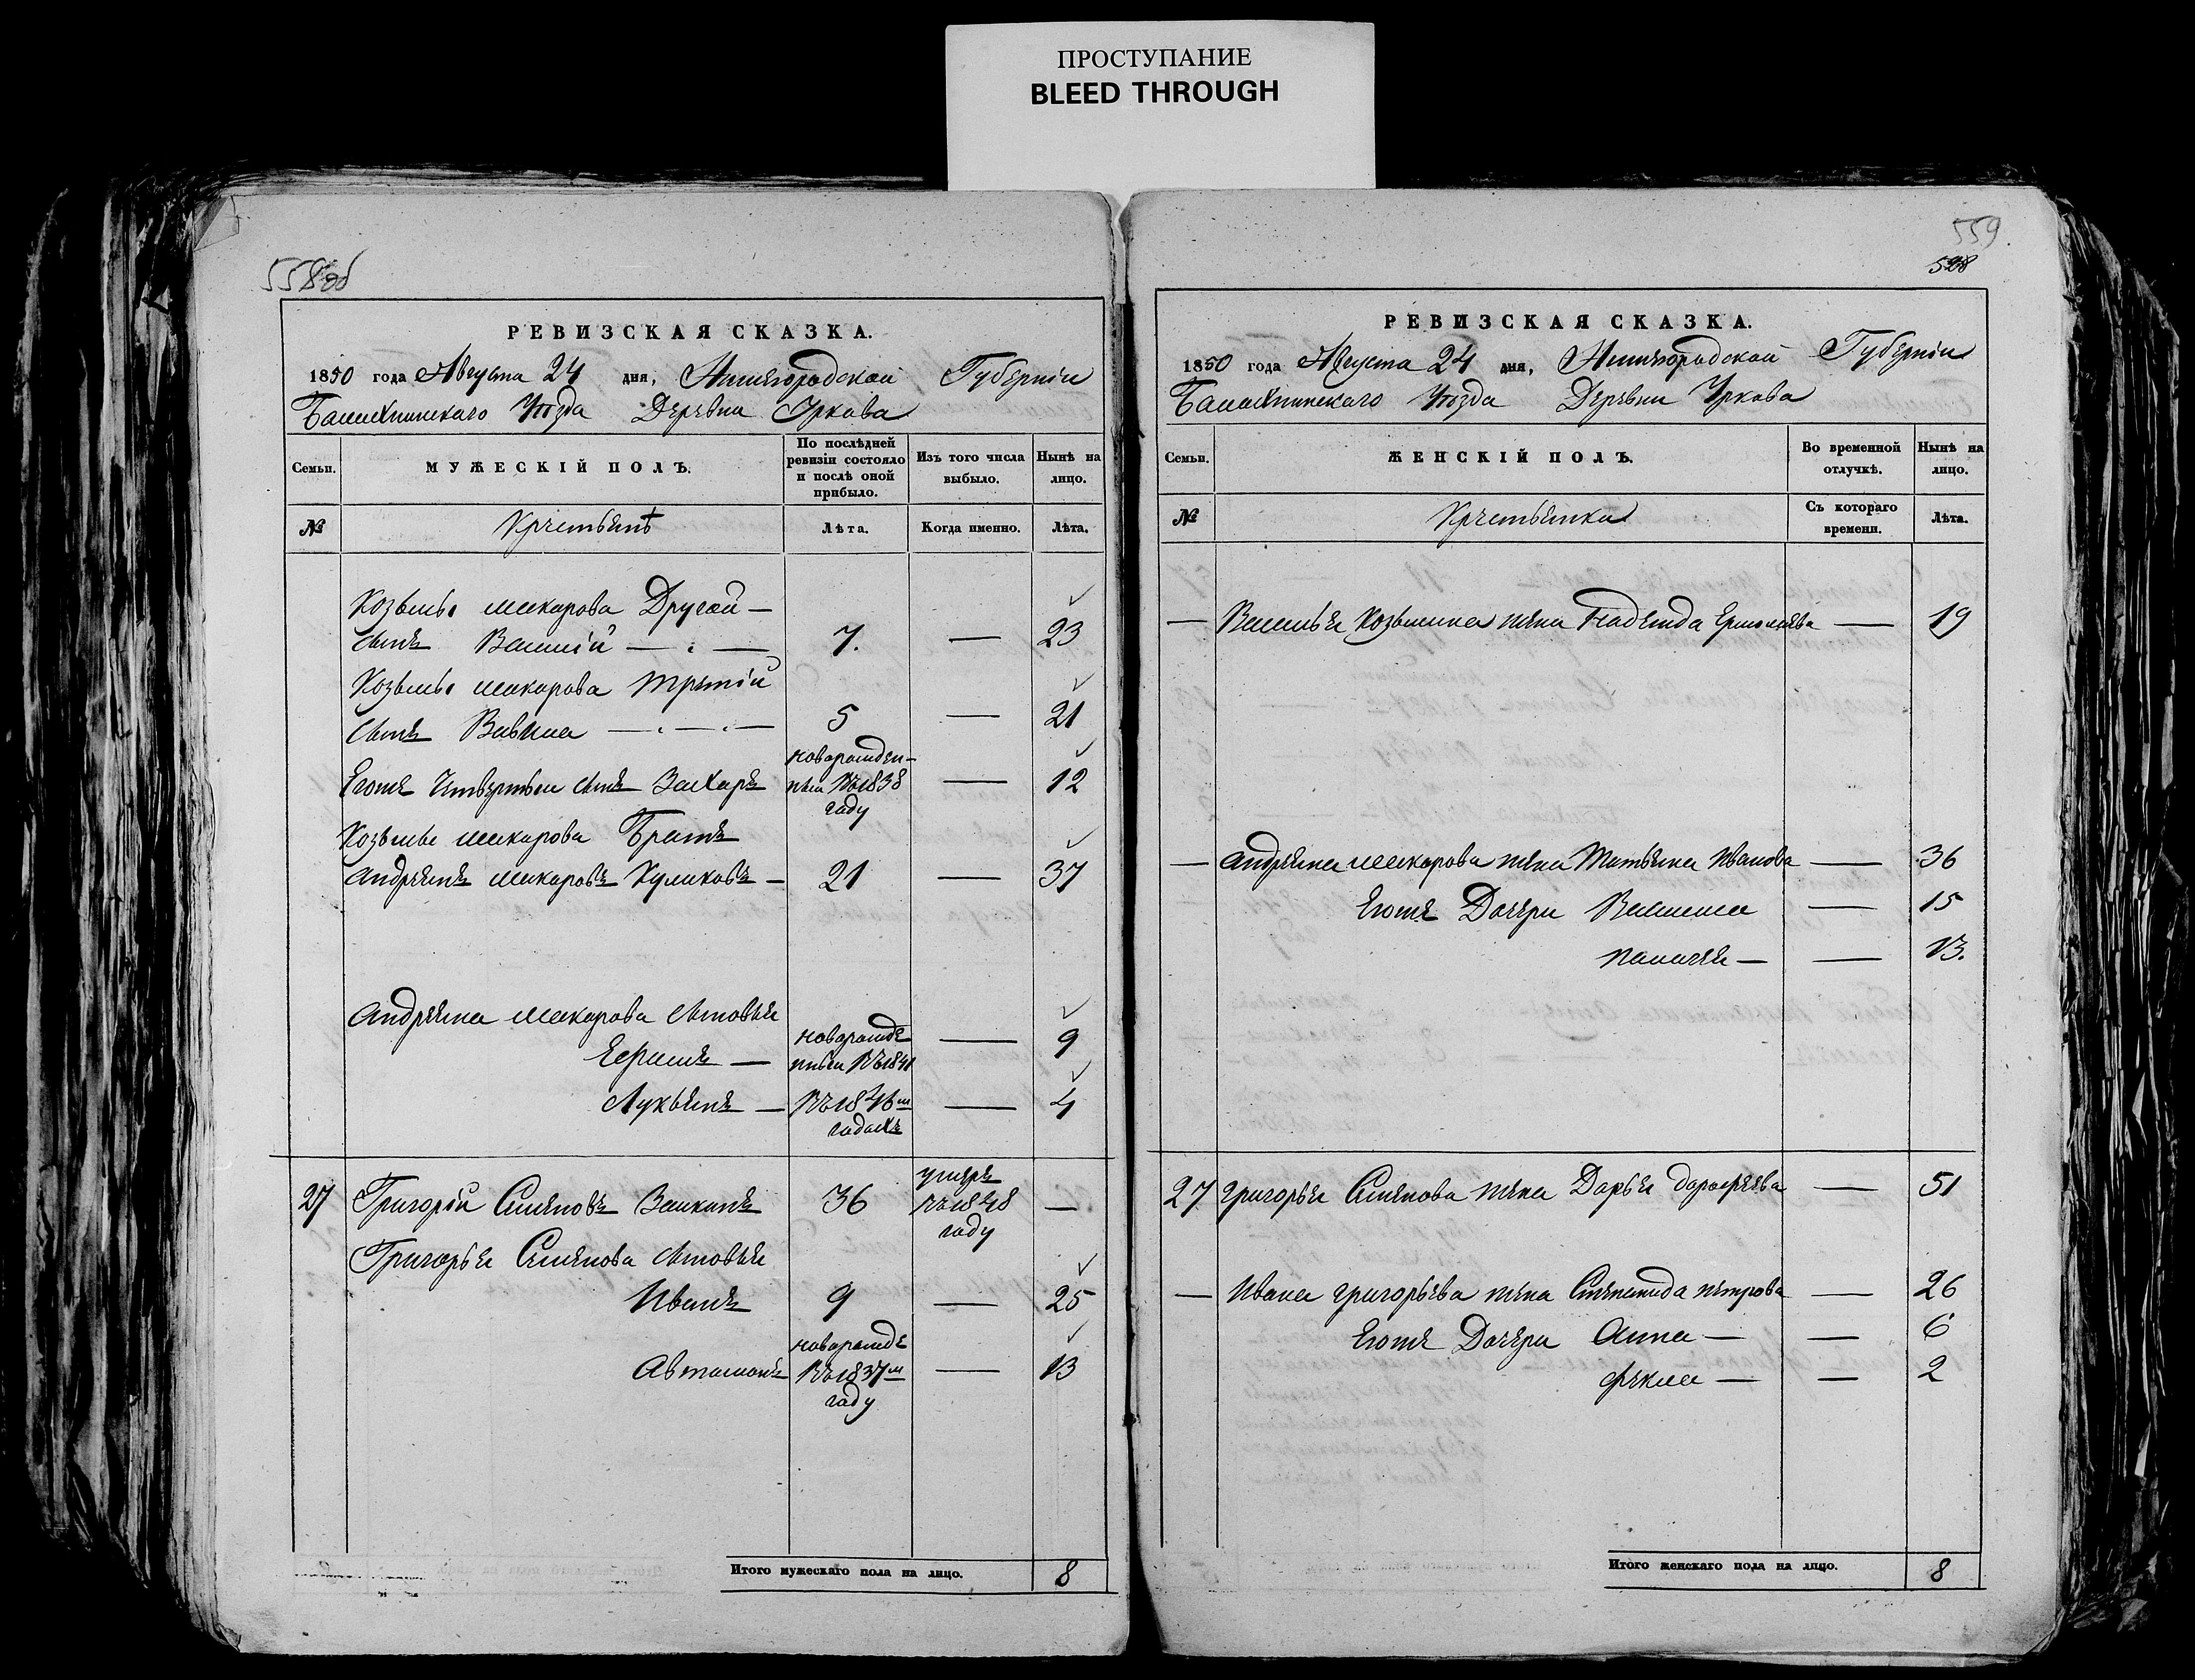 ПРОСТУПАНИЕ
BLEED THROUGH
558об
РЕВИЗСКАЯ СКАЗКА.
1850 года Августа 24 дня, Нижегородской Губернiи
Балахнинскаго Уѣзда Деревни Уркова
Семьи.
МУЖЕСКІЙ ПОЛЪ.
По послѣдней ревизіи состояло и послѣ оной прибыло.
Изъ того числа выбыло.
Нынѣ на лицо.
№
Крестьянѣ
Лѣта.
Когда именно.
Лѣта.
Козьмы Макарова Другой —
сынъ Василій — 7. — 23
Козьмы Макарова третій
сынъ Вавила — 5 — 21
Егожъ Четвертый сынъ Захаръ новорожден-ный въ 1838 году — 12
Козьмы Макарова Братъ
Андреянъ Макаровъ Куликовъ — 21 — 37
Андреяна Макарова сыновья
Ефимъ — новорожде нный въ 1841 — 9
Лукьянъ — въ 1846м годахъ — 4
27 Григорій Семеновъ 36 умеръ въ 1848 году —
Григорья Семенова сыновья
Иванъ 9 — 25
Автомонъ новорожде въ 1837м году — 13
Итого мужескаго пола на лицо. 8
559
528
РЕВИЗСКАЯ СКАЗКА.
1850 года Августа 24 дня, Нижегородской Губернiи
Балахнинскаго Уѣзда Деревни Уркова
Семьи.
ЖЕНСКІЙ ПОЛЪ.
Во временной отлучкѣ.
Нынѣ на лицо.
№
Крестьянки
Съ котораго времени.
Лѣта.
— Василья Козьмина жена Надежда Ермолаева — 19
— Андреяна Макарова жена Татьяна Иванова — 36
Егожъ Дочери Васса — 15
Палагея — — 13.
27 Григорья Семенова жена Дарья Дорофеева — 51
— Ивана Григорьева жена Степанида Петрова — 26
Егожъ Дочери Анна — — 6
Фекла — — 2
Итого женскаго пола на лицо. 8